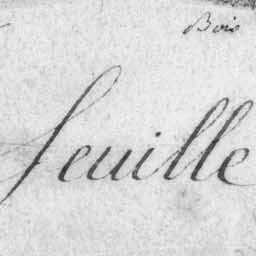 Bois
feuille